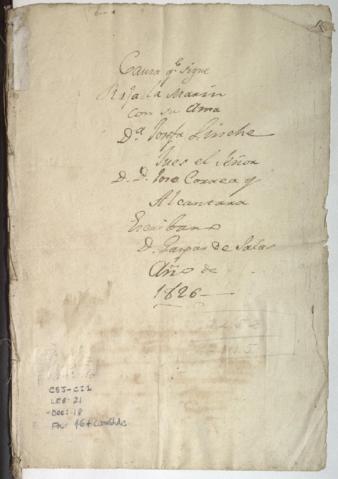 Causa q.e sigue
Rifa la Marin
con su Ama
D.a Josefa Sinche
Jues el Señor
D. D. Jose Correa y
Alcantara
Escribano
D. Gaspar de Salas
Año de
1826
CSJ-CI1
LEG: 21
DOC: 18